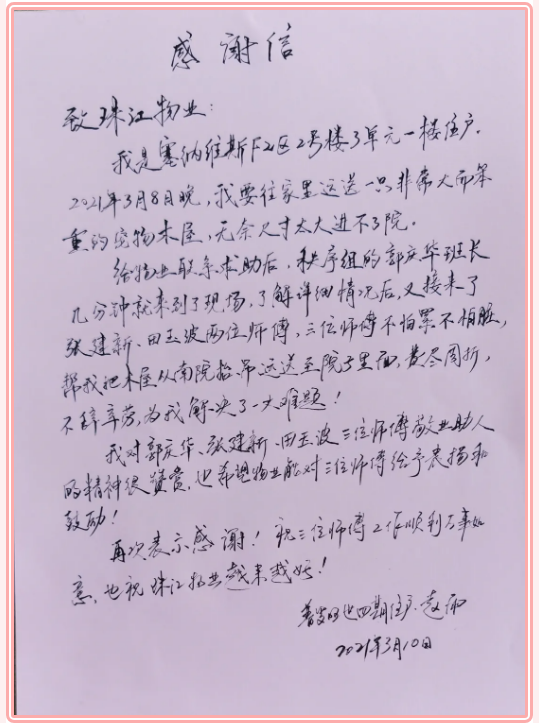 感谢信
致珠江物业:
我是塞纳维斯F2区2号楼3单元一楼住户.
2021年3月8日晚,我要往家里运送一只非常大而笨
重的宠物木屋,无奈尺寸太大进不了院.
给物业联系求助后,秩序组的郭庆华班长
几分钟就来到了现场,了解详细情况后,又接来了
张建新、田玉波两位师傅,三位师傅不怕累不怕脏,
帮我把木屋从南院抬吊运送至院子里面,费尽周折,
不辞辛劳,为我解决了一大难题!
我对郭庆华、张建新、田玉波三位师傅敬业助人
的精神很赞赏,也希望物业能对三位师傅给予表扬和
鼓励!
再次表示感谢!祝三位师傅工作顺利万事如
意,也祝珠江物业越来越好!
四期住户:赵
2021年3月10日